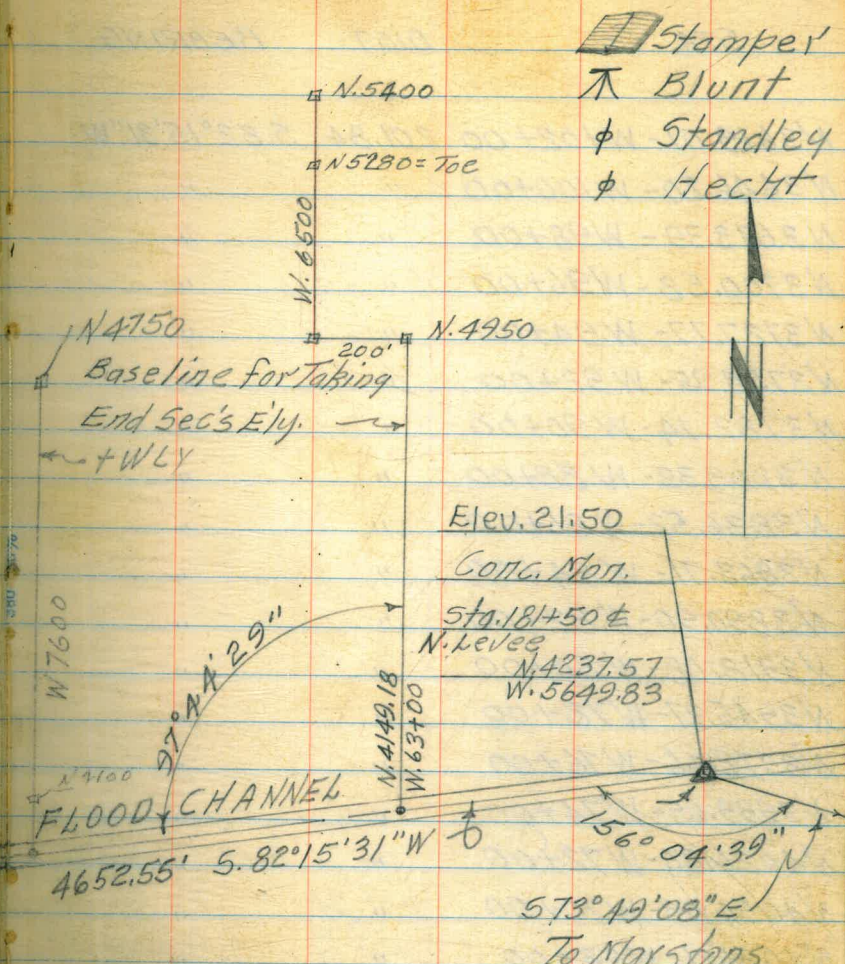 Stamper
Blunt
Standley
Hecht
N.5400
N5280=Toe
W. 6500
N4750
200'
N.4950
Baseline for Taking
End Sec's E'ly.
+WLY
N
Elev. 21.50
Conc. Mon.
Sta. 181+50 ¢
N. Levee
N.4237.57
W.5649.83
W7600
97°44'29"
N.4149.18
W.63+00
FLOOD CHANNEL
4652.55' S.82°15'31"W
156°04'39"
S73°49'08"E
To Marstons